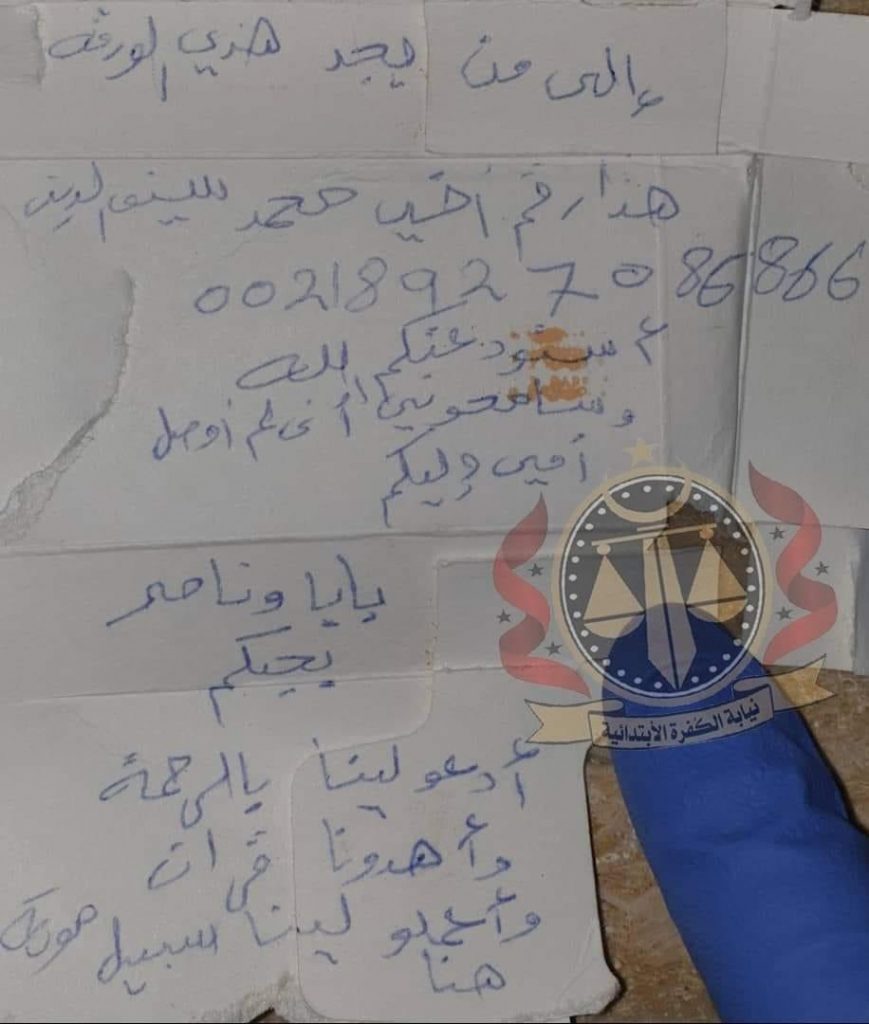 والى من يجد هذي الورقه
هذا رقم أخي محمد سيف الدين
00218927086866
استودعتكم الله
وسامحوني أنى لم أوصل
أمي اليكم
بابا وناصر
يحبكم
أدعو لينا بالرحمة
وأهدونا قرآن
وأعملو لينا سبيل مويه
هنا
نيابة الكفرة الأبتدائية